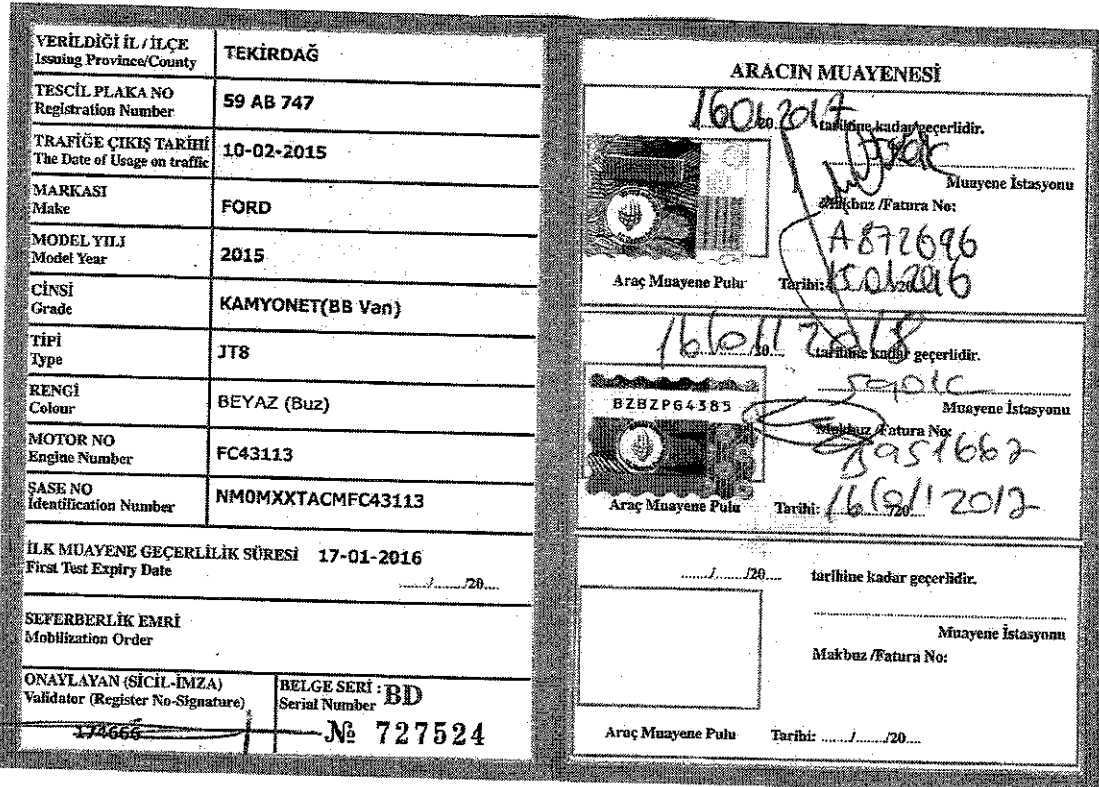 VERİLDİĞİ İL / İLÇE
Issuing Province/County
TEKİRDAĞ
TESCİL PLAKA NO
Registration Number
59 AB 747
TRAFİĞE ÇIKIŞ TARİHİ
The Date of Usage on traffic
10-02-2015
MARKASI
Make
FORD
MODEL YILI
Model Year
2015
CİNSİ
Grade
KAMYONET(BB Van)
TİPİ
Type
JT8
RENGİ
Colour
BEYAZ (Buz)
MOTOR NO
Engine Number
FC43113
ŞASE NO
Identification Number
NM0MXXTACMFC43113
İLK MUAYENE GEÇERLİLİK SÜRESİ 17-01-2016
First Test Expiry Date
....../......./20....
SEFERBERLİK EMRİ
Mobilization Order
ONAYLAYAN (SİCİL-İMZA)
Validator (Register No-Signature)
174666
BELGE SERİ : BD
Serial Number
№ 727524
ARACIN MUAYENESİ
tarihine kadar geçerlidir.
Muayene İstasyonu
Makbuz /Fatura No:
A872696
Araç Muayene Pulu
Tarihi:
tarihine kadar geçerlidir.
BZBZP64385
Muayene İstasyonu
Makbuz /Fatura No:
Araç Muayene Pulu
Tarihi:
....../......./20.... tarihine kadar geçerlidir.
Muayene İstasyonu
Makbuz /Fatura No:
Araç Muayene Pulu
Tarihi: ......./......./20....